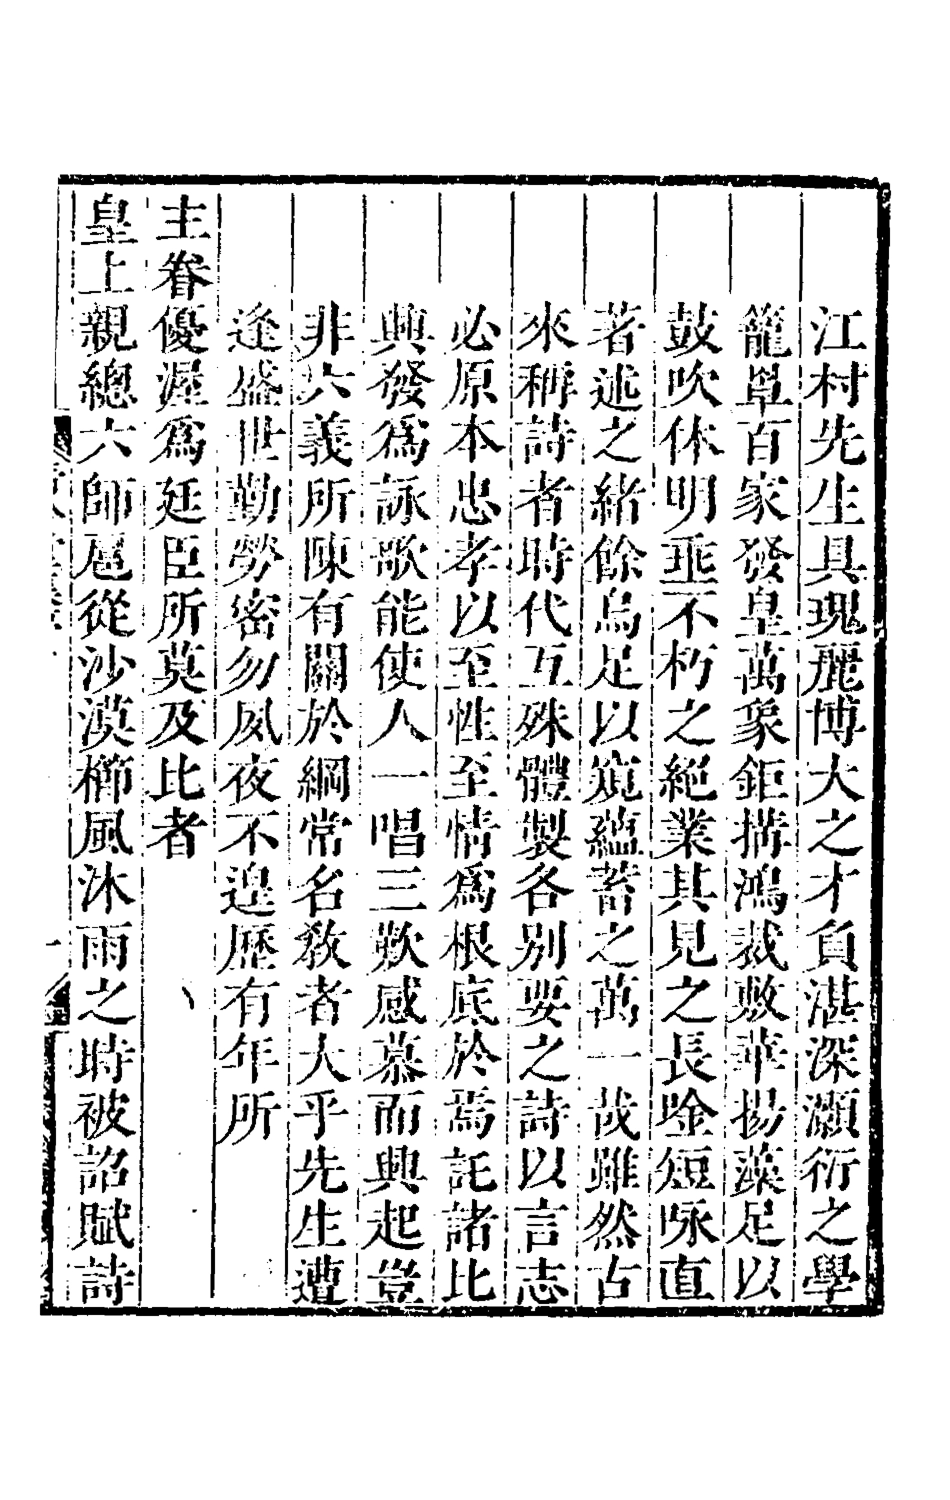 江村先生具瑰麗博大之才負湛深灝衍之學
籠罩百家發皇萬象鉅搆鴻裁敷華揚藻足以
鼓吹休明垂不朽之絕業其見之長唫短咏直
著述之緒餘烏足以窺蘊蓄之萬一哉雖然古
來稱詩者時代互殊體製各別要之詩以言志
必原本忠孝以至性至情為根底於焉託諸比
興發為詠歌能使人一唱三歎感慕而興起豈
非六義所陳有關於綱常名教者大乎先生遭
逢盛世勤勞密勿夙夜不遑歷有年所
主眷優渥為廷臣所莫及比者
皇上親總六師扈從沙漠櫛風沐雨之時被詔賦詩